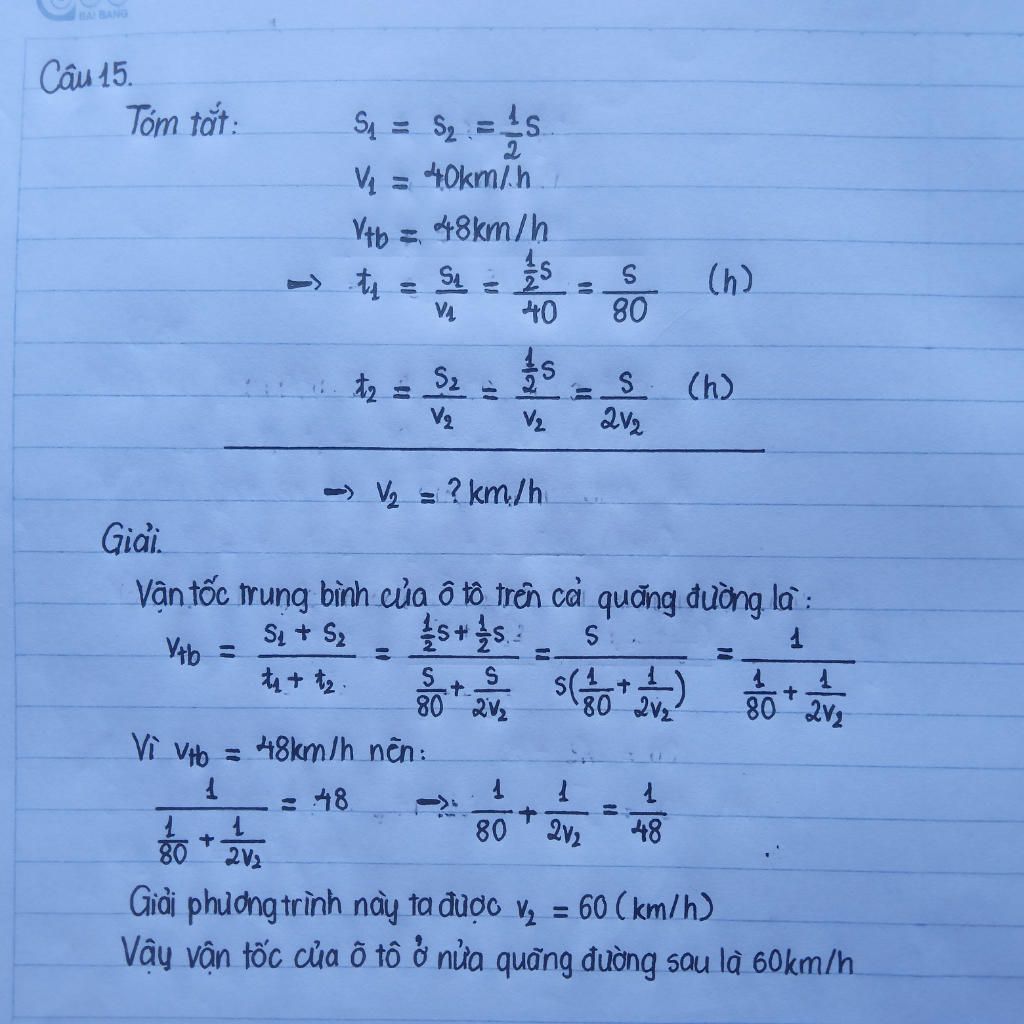 BÃI BẰNG
Câu 15.
Tóm tắt: S₁ = S₂ = 1/2 S
V₁ = 40km/h
Vtb = 48km/h
→ t₁ = S₁/V₁ = (1/2 S)/40 = S/80 (h)
t₂ = S₂/V₂ = (1/2 S)/V₂ = S/2V₂ (h)
→ V₂ = ? km/h
Giải.
Vận tốc trung bình của ô tô trên cả quãng đường là:
Vtb = (S₁ + S₂)/(t₁ + t₂) = (1/2 S + 1/2 S)/(S/80 + S/2V₂) = S/(S(1/80 + 1/2V₂)) = 1/(1/80 + 1/2V₂)
Vì Vtb = 48km/h nên:
1/(1/80 + 1/2V₂) = 48 → 1/80 + 1/2V₂ = 1/48
Giải phương trình này ta được V₂ = 60 (km/h)
Vậy vận tốc của ô tô ở nửa quãng đường sau là 60km/h